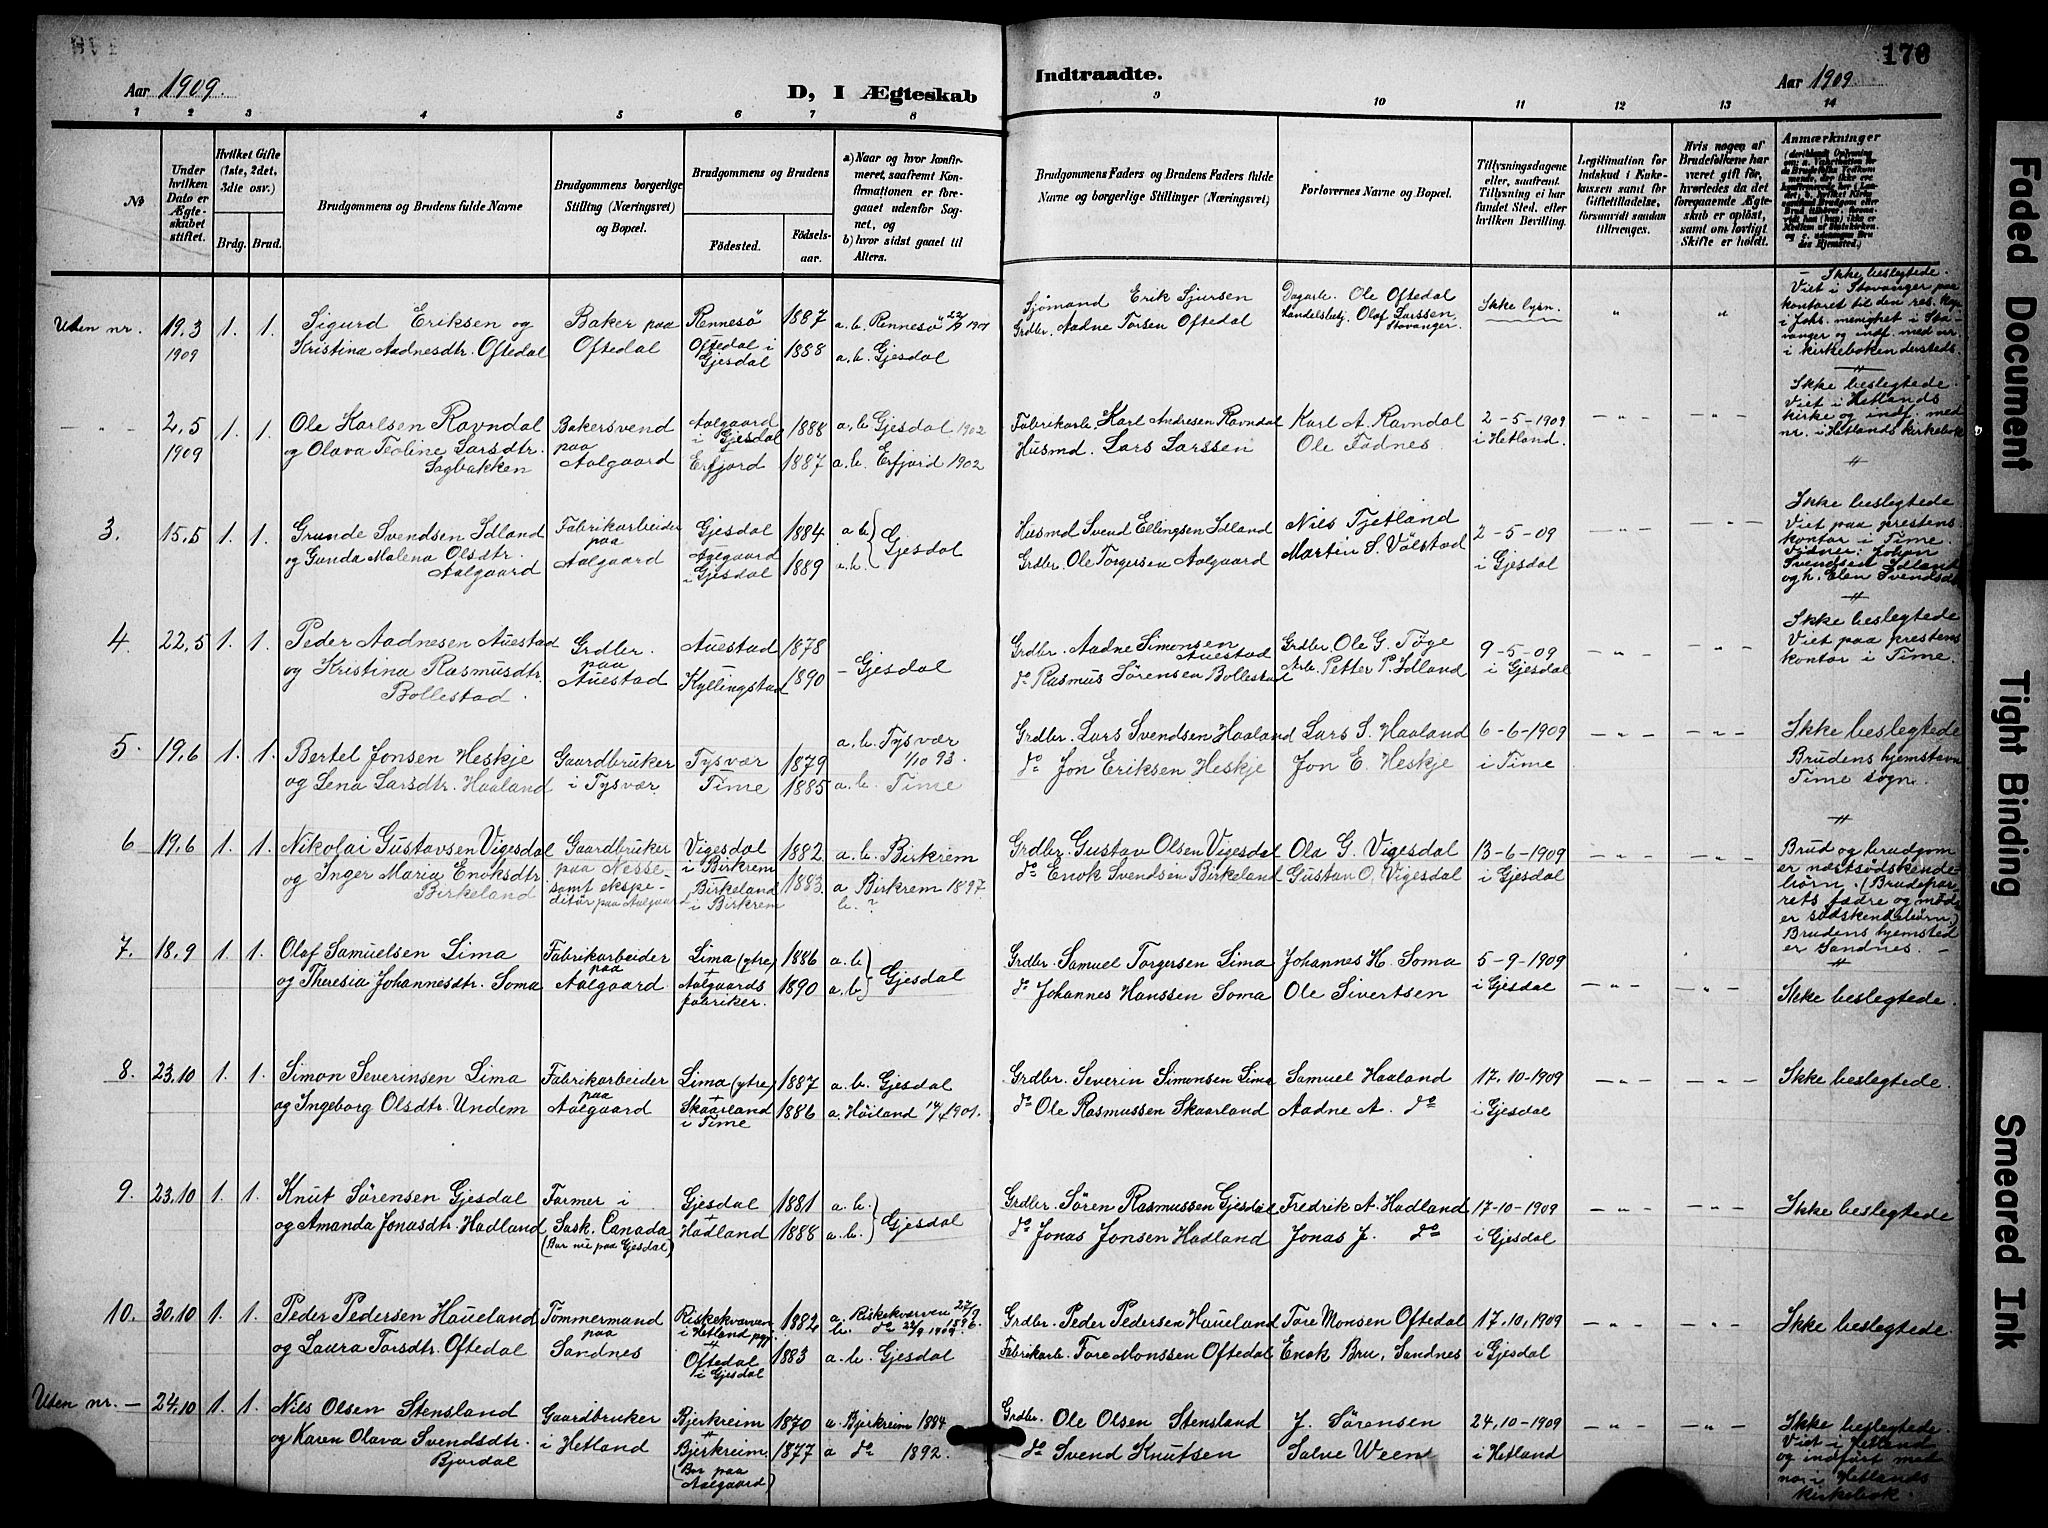 Aar 1909.
D, I Ægteskab
Indtraadte.
176
Aar 1909.
1 2 3 4 5 6 7 8 9 10 11 12 13 14
№
Under hvilken Dato er Ægteskabet stiftet.
Hvilket Gifte (1ste, 2det, 3die osv.)
Brdg. Brud.
Brudgommens og Brudens fulde Navne
Brudgommens borgerlige Stilling (Næringsvei) og Bopæl.
Brudgommens og Brudens
Fødested.
Fødselsaar.
a) Naar og hvor konfirmeret, saafremt Konfirmationen er foregaaet udenfor Sognet, og
b) hvor sidst gaaet til Alters.
Brudgommens Faders og Brudens Faders fulde Navne og borgerlige Stillinger (Næringsvei)
Forlovernes Navne og Bopæl.
Tillysningsdagene eller, saafremt Tillysning ei har fundet Sted, efter hvilken Bevilling.
Legitimation for Indskud i Enkekassen samt for Giftetilladelse, forsaavidt saadan tiltrænges.
Hvis nogen af Brudefolkene har været gift før, hvorledes da det foregaaende Ægteskab er opløst, samt om lovligt Skifte er holdt.
Anmærkninger
Uten nr. 19,3 1909 1. 1. Sigurd Eriksen og Kristina Aadnesdtr. Oftedal
Baker paa Oftedal
Rennesö 1887 a.b. Rennesö
Oftedal i Gjesdal 1888 a.b. Gjesdal
Sjömand Erik Sjursen
Grdbr. Aadne Torsen Oftedal
Dagarb. Ole Oftedal
Handelsbetj. Olaf Larssen Stavanger.
Ikke lysn. " "
- Ikke beslegtede. Viet i Stavanger paa kontoret til den res. kap. i Joh. menighet i Stavanger og indf. med nr. i kirkeboken dersteds.
- " - 2,5 1909 1. 1. Ole Karlsen Ravndal og Olava Teoline Larsdtr. Sagbakken
Bakersvend paa Aalgaard
Aalgaard i Gjesdal 1888 a.b. Gjesdal 1902
Erfjord 1887 a.b. Erfjord 1902
Fabrikarb. Karl Andresen Ravndal
Husmd. Lars Larssen
Karl A. Ravndal
Ole Tadnes
2-5-1909 i Hetland. - " - - " -
Ikke beslegtede. Viet i Hetlands kirke og indf. med nr. i Hetlands kirkebok
3. 15,5 1. 1. Grunde Svendsen Idland og Gunda Malena Olsdtr. Aalgaard
Fabrikarbeider paa Aalgaard
Gjesdal 1884 a.b. Gjesdal
Aalgaard i Gjesdal 1889 a.b.
Husmd Svend Ellingsen Idland
Grdbr. Ole Torgersen Aalgaard
Nils Tjetland
Martin S. Välstad
2-5-09 i Gjesdal - " - - " -
Ikke beslegtede Viet paa prestens kontor i Time. Vidner: Johan Svendsen Idland og h. Elen Svendsdr
4. 22,5 1. 1. Peder Aadnesen Auestad og Kristina Rasmusdtr. Bollestad.
Grdbr. paa Auestad
Auestad 1878
Kyllingstad 1890 - Gjesdal
Grdbr. Aadne Simonsen Auestad
do Rasmus Sörensen Bollestad
Grdbr. Ole G. Töge
Arb. Petter P. Idland
9-5-09 i Gjesdal - " - - " -
Ikke beslegtede Viet paa prestens kontor i Time.
5. 19,6 1. 1. Bertel Jonsen Heskje og Lena Larsdtr. Haaland
Gaardbruker i Tysvær
Tysvær 1879 a.b. Tysvær 1/10 93.
Time 1885 a.b. Time
Grdbr. Lars Svendsen Haaland
do Jon Eriksen Heskje
Lars S. Haaland
Jon E. Heskje
6-6-1909 i Time - " - - " -
Ikke beslegtede Brudens hjemstavn Time sogn.
6 19,6 1. 1. Nikolai Gustavsen Vigesdal og Inger Maria Enoksdtr Birkeland
Gaardbruker paa Nesse samt ekspeditör paa Aalgaard
Vigesdal i Birkrem 1882. a.b. Birkrem
Birkeland i Birkrem 1883. a Birkrem 1897. b. ?
Grdbr. Gustav Olsen Vigesdal
do Enok Svendsen Birkeland
Ola G. Vigesdal
Gustav O. Vigesdal
13-6-1909 i Gjesdal - " - - " -
Brud og brudgom er næstsödskendebörn. (Brudeparrets fædre og mödre er södskendebörn.) Brudens hjemsted er Sandnes.
7. 18,9 1. 1. Olaf Samuelsen Lima og Theresia Johannesdtr. Soma
Fabrikarbeider paa Aalgaard
Lima (ytre) 1886 a.b. Gjesdal
Aalgaards fabriker. 1890 a.b.
Grdbr. Samuel Torgersen Lima
do Johannes Hanssen Soma
Johannes H. Soma
Ole Sivertsen
5-9-1909 i Gjesdal - " - - " -
Ikke beslegtede.
8. 23,10 1. 1. Simon Severinsen Lima og Ingeborg Olsdtr. Undem
Fabrikarbeider paa Aalgaard
Lima (ytre) 1887 a.b. Gjesdal
Skaarland i Time 1886 a. Höiland 1901.
Grdbr. Severin Simonsen Lima
do Ole Rasmussen Skaarland
Samuel Haaland
Aadne A. do
17,10-1909 i Gjesdal - " - - " -
Ikke beslegtede.
9. 23,10 1. 1. Knut Sörensen Gjesdal og Amanda Jonasdtr. Hadland
Farmer i Sask. Canada (Bor nu paa Gjesdal)
Gjesdal 1881 a.b. Gjesdal
Hadland 1888 a.b.
Grdbr. Sören Rasmussen Gjesdal
do Jonas Jonsen Hadland
Fredrik A. Hadland
Jonas J. do
17-10-1909 i Gjesdal - " - - " -
Ikke beslegtede
10. 30,10 1. 1. Peder Pedersen Haueland og Laura Torsdtr. Oftedal
Tömmermand paa Sandnes
Riskekværven i Hetland pgj. 1882 a. Riskekværven 27/9 1896. b. do
Oftedal i Gjesdal 1883 a.b. Gjesdal
Grdbr. Peder Pedersen Haueland
Fabrikarb. Tore Monssen Oftedal
Tore Monsen Oftedal
Enok Bru, Sandnes
17,10,1909 i Gjesdal - " - - " -
Ikke beslegtede.
Uten nr. - 24,10 1. 1. Nils Olsen Stensland og Karen Olava Svendsdtr. Bjordal
Gaardbruker i Hetland
Bjerkreim 1870 a. Bjerkreim 1884
Bjerkreim. (Bor paa Aalgaard) 1877 a do 1892.
Grdbr. Ole Olsen Stensland
do Svend Knutsen
J. Sörensen
Salve Ween
24,10-1909 i Hetland - " - - " -
Ikke beslegtede. Viet i Hetland og indfört med no i Hetlands kirkebok.
Faded Document
Tight Binding
Smeared Ink